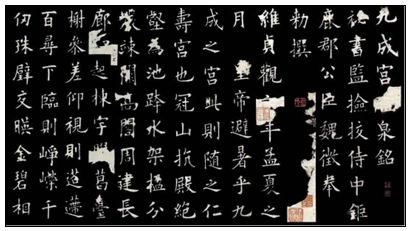 九成宮泉銘
秘書監撿挍侍中鉅
鹿郡公臣魏徵奉
勑撰
維貞觀年孟夏之
月皇帝避暑乎九
成之宮此則隨之仁
壽宮也冠山抗殿絕
壑為池跨水架楹分
竦闕高閣周建長
廊起棟宇葛臺
榭參差仰視則迢遰
百尋下臨則崢嶸千
仞珠璧交暎金碧相